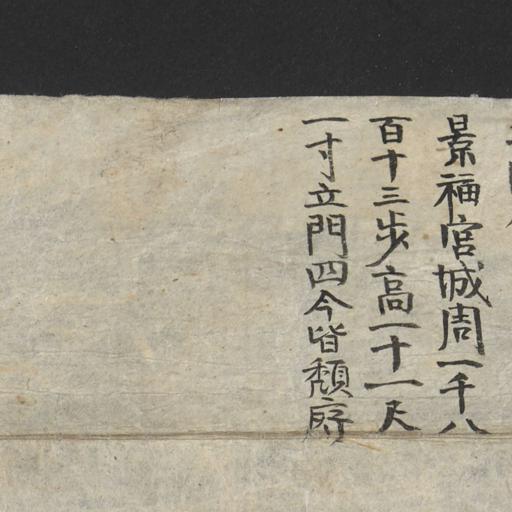 景福宮城周一千八
百十三步高二十一尺
一寸立門四今皆頹府